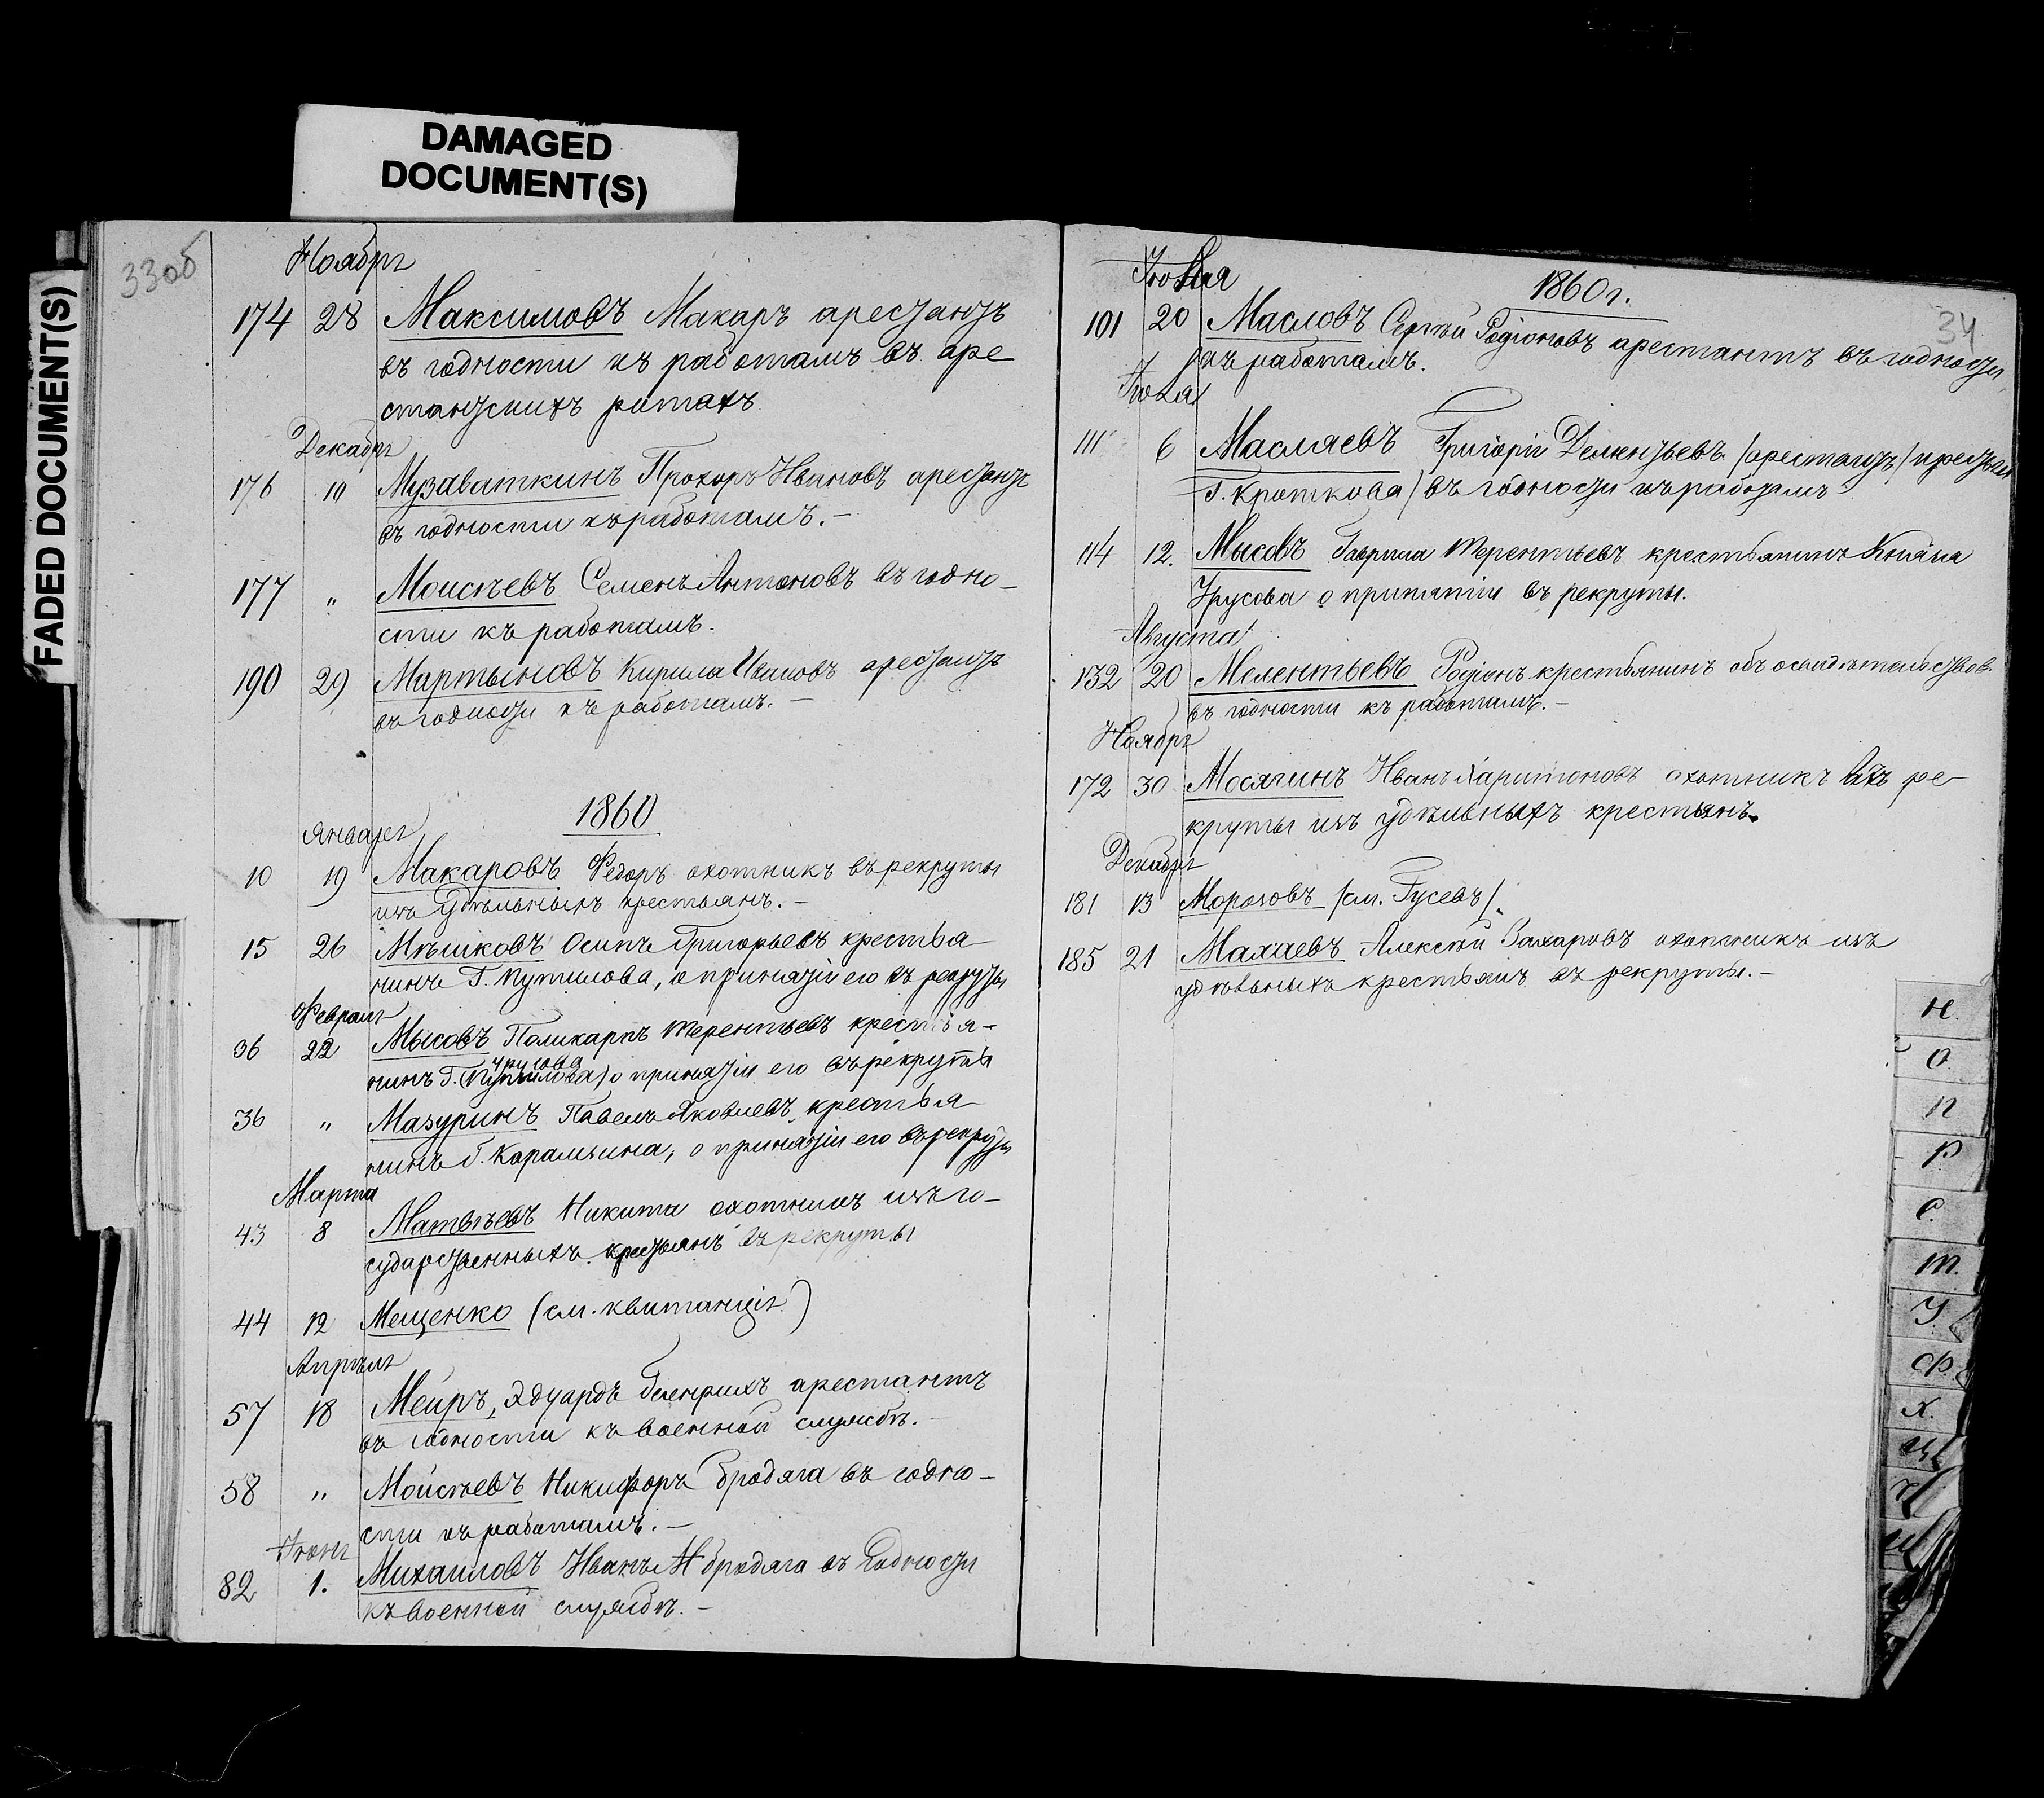 DAMAGED
DOCUMENT(S)
FADED DOCUMENT(S)
33об
Ноября
174 28 Максимовъ Макаръ арестантъ
въ годности къ работамъ въ аре
стантскихъ ротахъ
Декабря
176 10 Музаваткинъ Прохоръ Ивановъ арестантъ
въ годности къ работамъ.—
177 " Моисѣевъ Семенъ Антоновъ въ годно-
сти къ работамъ.
190 29 Мартыновъ Кирила Ивановъ арестантъ
въ годности къ работамъ.—
1860
Января
10 19 Макаровъ Федоръ охотникъ въ рекруты
изъ Удѣльныхъ крестьянъ.—
15 26 Мѣшковъ Осипъ Григорьевъ крестья-
нинъ Г. Путилова, о принятіи его въ рекруты
Февраля
36 22 Мысовъ Поликарпъ Терентьевъ крестья-
Урусова
нинъ Г. (Путилова) о принятіи его въ рекруты
36 " Мазуринъ Павелъ Яковлевъ крестья-
нинъ Г. Карамзина, о принятіи его въ рекруты
Марта
43 8 Матвѣевъ Никита охотникъ изъ го-
сударственныхъ крестьянъ въ рекруты
44 12 Мещенко (см. квитанціи)
Апрѣля
57 18 Мейръ, Эдуардъ Генрихъ арестантъ
въ годности къ военной службѣ.—
58 " Мойсѣевъ Никифоръ бродяга въ годно-
сти къ работамъ.—
Іюня
82 1. Михаиловъ Иванъ М бродяга въ годности
къ военной службѣ.—
Іюня
1860 г.
34
101 20 Масловъ Сергѣй Родіоновъ арестантъ въ годности
къ работамъ.
Іюля
111 6 Масляевъ Григорій Дементьевъ (арестантъ)
Г. Кроткова) въ годности къ работамъ
114 12. Мысовъ Гаврила Терентьевъ крестьянинъ Князя
Урусова о принятіи въ рекруты.
Августа
132 20 Мелентьевъ Родіонъ крестьянинъ объ освидѣтельствов.
въ годности къ работамъ.—
Ноября
172 30 Мосягинъ Иванъ Харитоновъ охотникъ въ ре-
круты изъ удѣльныхъ крестьянъ.
Декабря
181 13 Морозовъ (см. Гусевъ).
185 21 Махаевъ Алексѣй Захаровъ охотникъ изъ
удѣльныхъ крестьянъ въ рекруты.—
Н.
О.
П
Р
С.
Т.
У.
Ф.
Х.
Ц
Ч
Ш